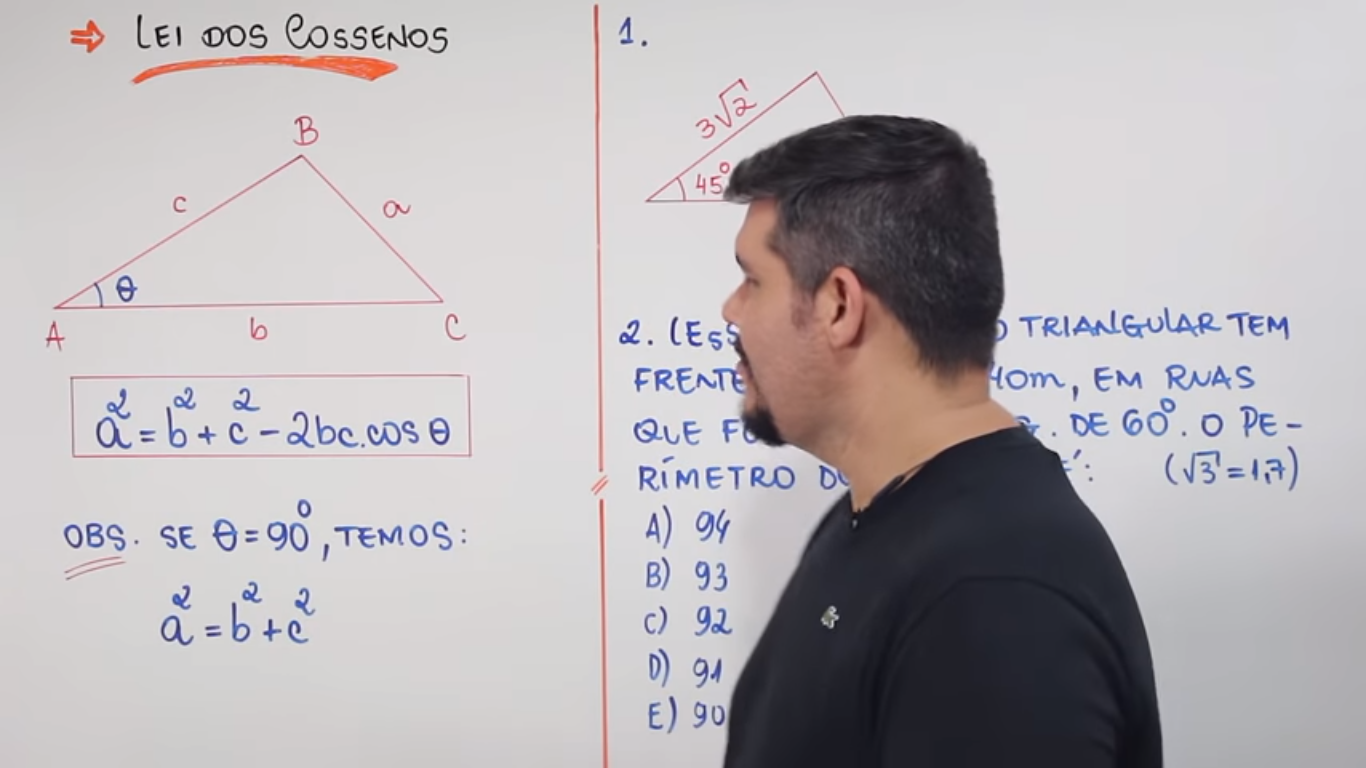 ⇒ LEI DOS COSSENOS
B
c
a
θ
A
b
C
a² = b² + c² - 2bc.cos θ
OBS. SE θ = 90°, TEMOS:
a² = b² + c²
1.
3√2
45°
2. TRIANGULAR TEM
40m, EM RUAS
QUE DE 60°. O PE-
RÍMETRO É: (√3 = 1,7)
A) 94
B) 93
C) 92
D) 91
E) 90